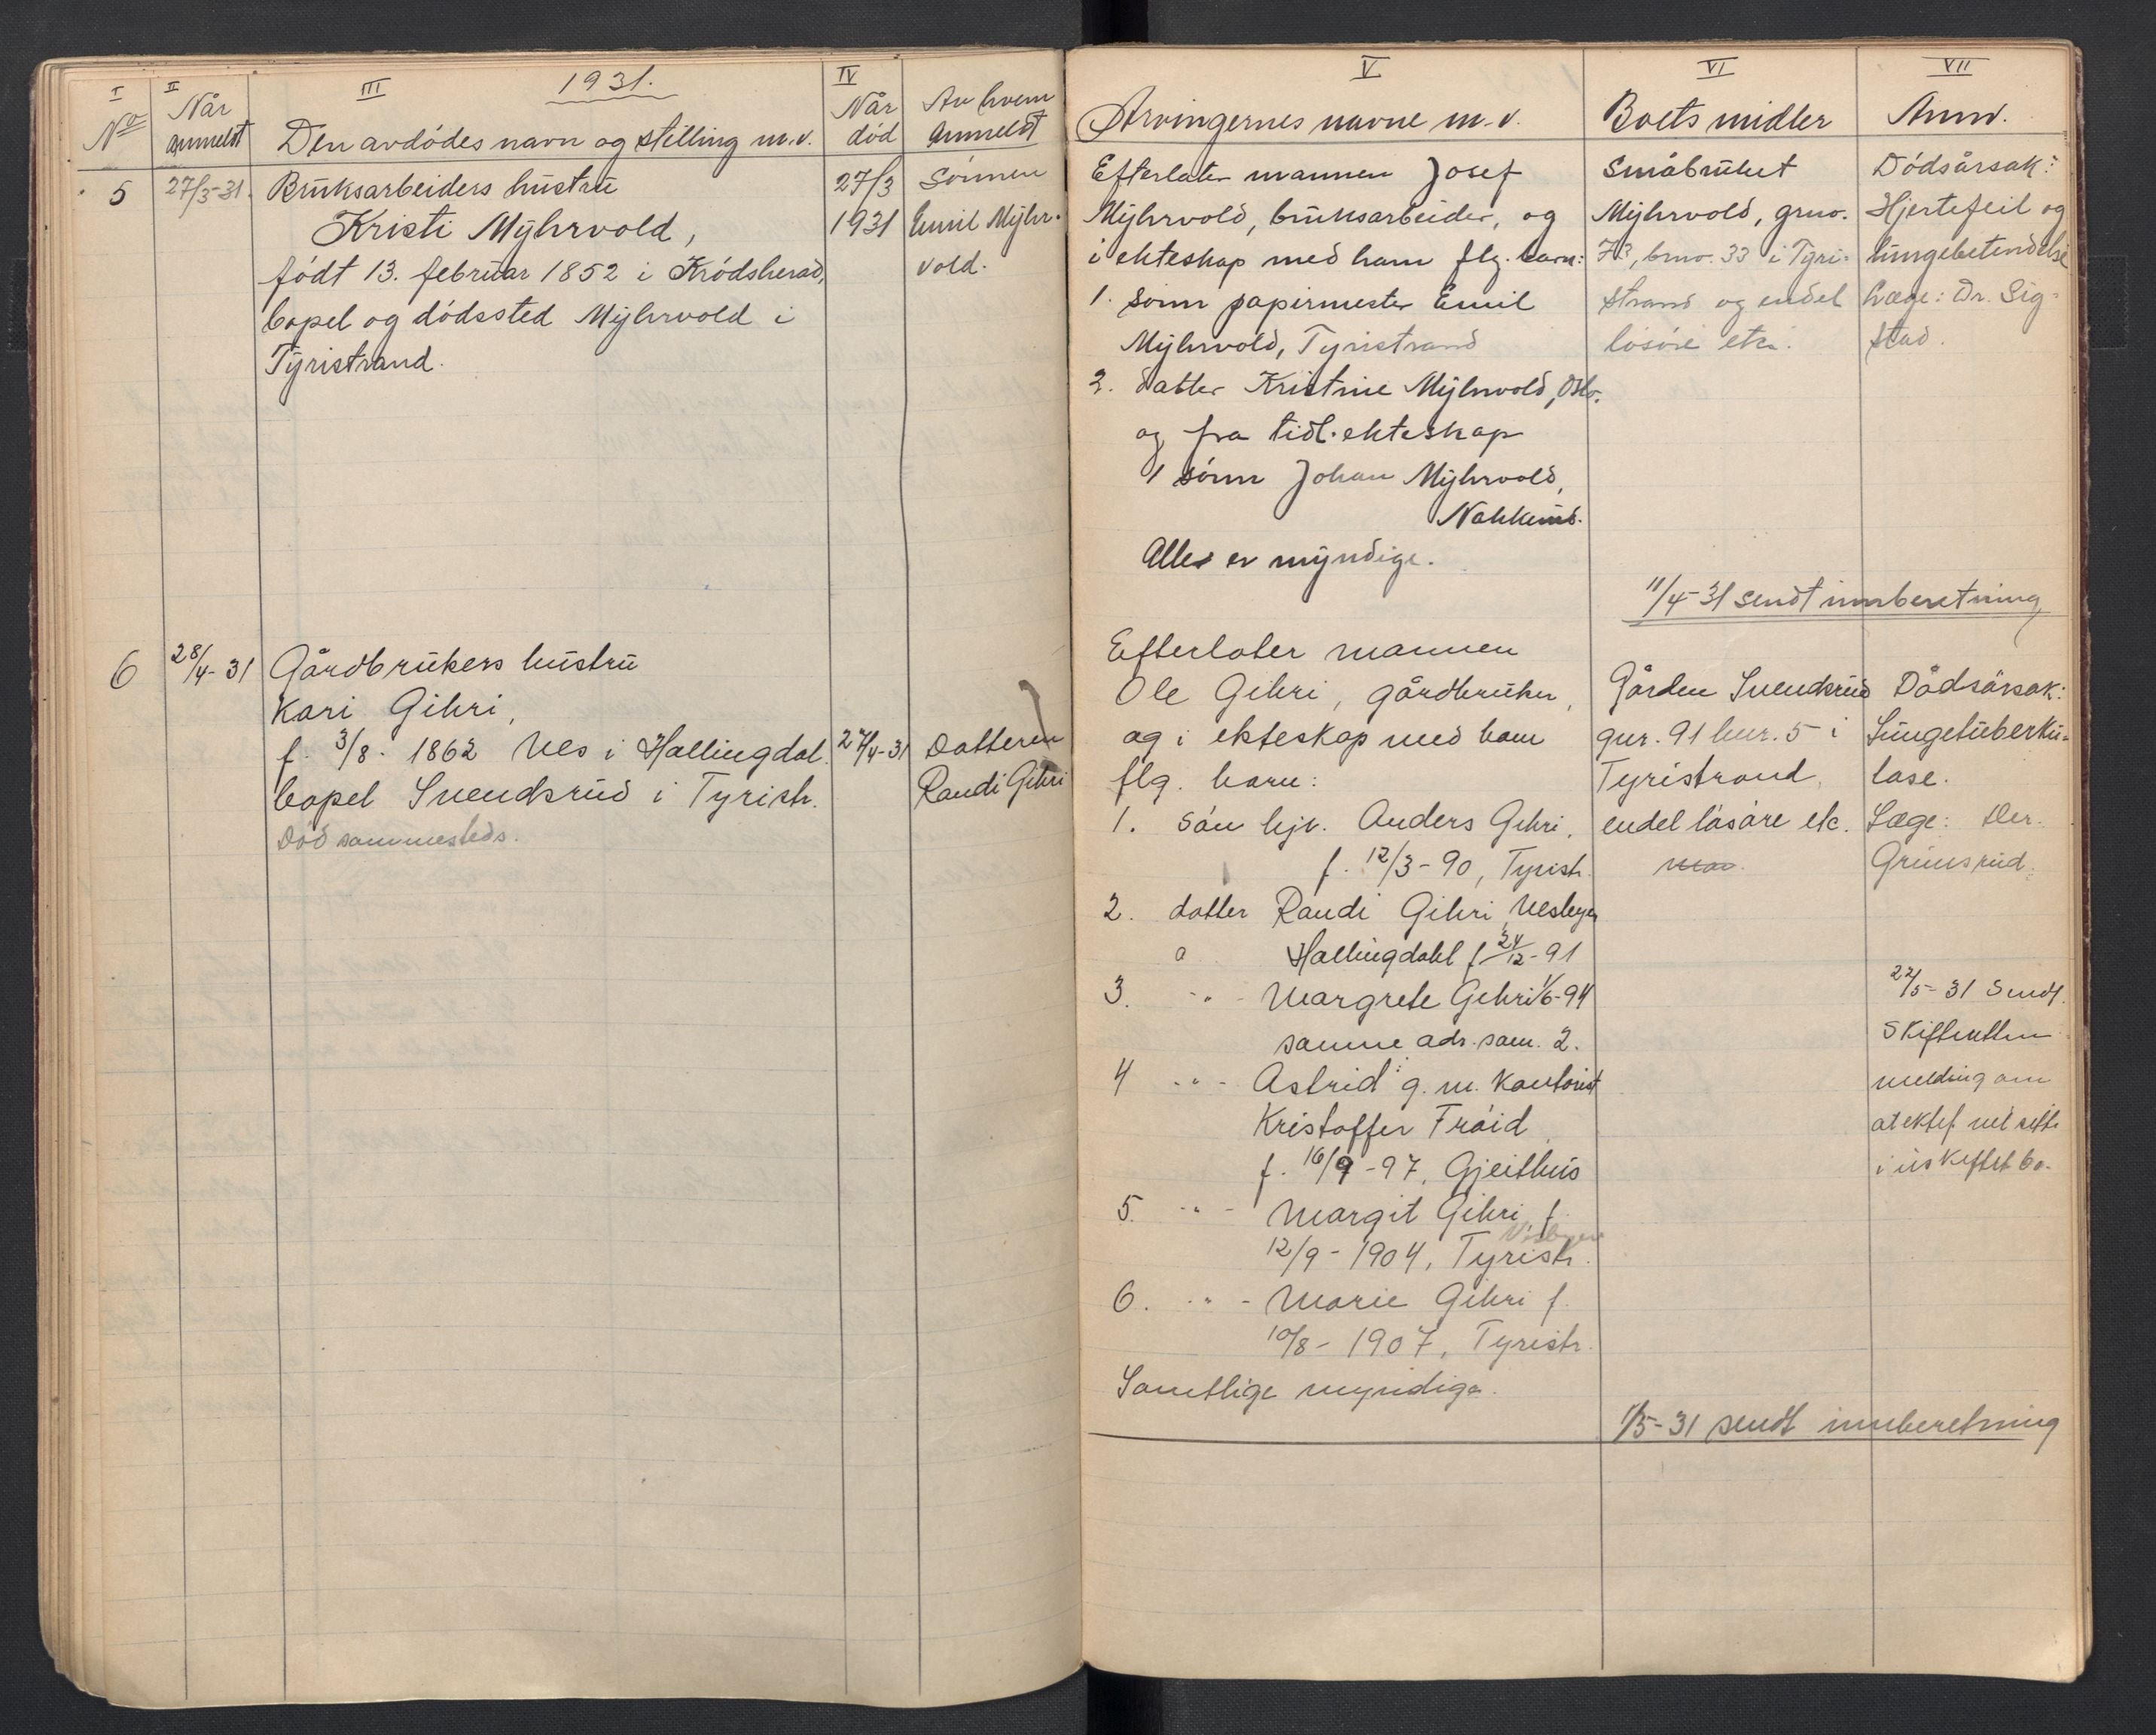 1931.
I II III IV
No Når anmeldt Den avdødes navn og stilling m.v. Når død Av hvem anmeldt
5 27/3-31. Bruksarbeiders hustru
Kristi Myhrvold,
født 13. februar 1852 i Krødsherad,
bopel og dødssted Myhrvold i
Tyristrand.
27/3
1931
Sönnen
Emil Myhr-
vold.
6 28/4-31 Gårdbrukers hustru
Kari Gihri,
f. 3/8. 1862 Nes i Hallingdal.
bopel Svendsrud i Tyristr.
Død sammesteds.
27/4-31
Datteren
Randi Gihri
V VI VII
Arvingernes navne m.v. Boets midler Anm.
Efterlater mannen Josef
Myhrvold, bruksarbeider, og
i ekteskap med ham flg. barn:
1. sønn papirmester Emil
Myhrvold, Tyristrand
2. datter Kristine Myhrvold, Oslo.
og fra tidl. ekteskap
1 sønn Johan Myhrvold,
Nakkerud.
Alle er myndige.
Småbruket
Myhrvold, grno.
73, brno. 33 i Tyri-
strand og endel
løsøre etc.
Dödsårsak:
Hjertefeil og
lungebetendelse
Læge: Dr. Sig-
stad.
11/4-31 sendt innberetning
Efterlater mannen
Ole Gihri, gårdbruker,
og i ekteskap med ham
flg. barn:
1. sön hjv. Anders Gihri,
f. 12/3-90, Tyristr.
2. datter Randi Gihri, Nesbyen
Hallingdahl f 24/12-91
3. -"- Margrete Gihri 1/6-94
samme adr. som. 2.
4 -"- Astrid g. m. Kontorist
Kristoffer Fröid
f. 16/9-97, Gjeithus
5. -"- Margit Gihri, f.
Nesbyen
12/9-1904, Tyristr.
6. -"- Marie Gihri f.
10/8-1907, Tyristr.
Samtlige myndige.
Gården Svendsrud
gnr. 91 bnr. 5 i
Tyristrand,
endel løsøre etc.
Dødsårsak:
Lungetuberku-
lose.
Læge: Her.
Grimsrud.
22/5-31 Sendt
Skifteretten
melding om
at ektef. vil sitte
i uskiftet bo.
1/5-31 sendt innberetning